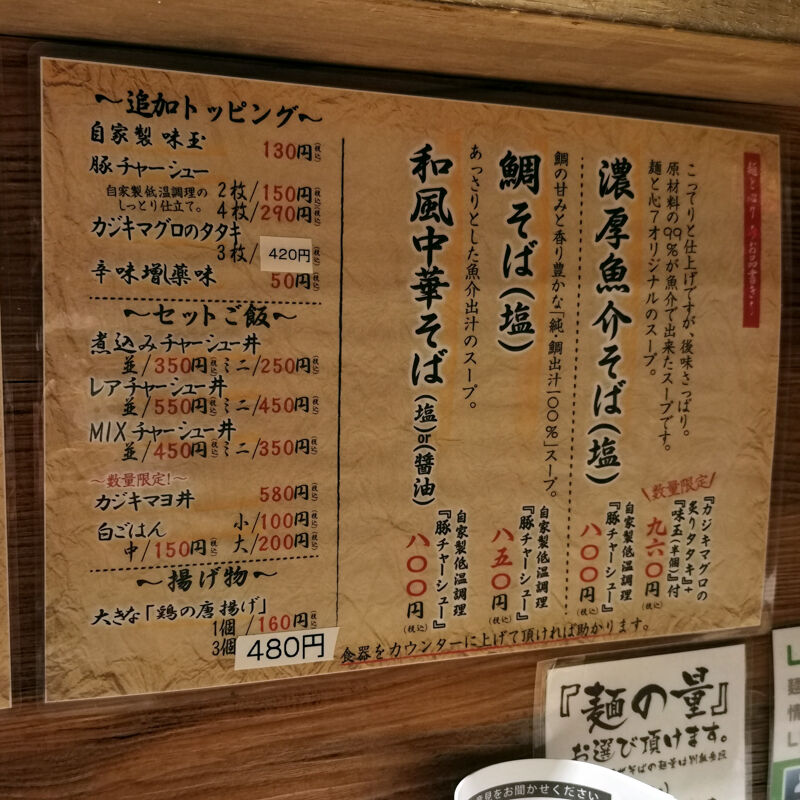 こってりと仕上げですが、後味さっぱり。
原材料の99%が魚介で出来たスープです。
麺と心7オリジナルのスープ。
濃厚魚介そば(塩)
数量限定!
『カジキマグロの
炙りタタキ』+
『味玉(半個)』付
九六〇円(税込)
自家製低温調理
『豚チャーシュー』
八〇〇円(税込)
鯛の甘みと香り豊かな「純・鯛出汁一〇〇%」スープ。
鯛そば(塩)
自家製低温調理
『豚チャーシュー』
八五〇円(税込)
あっさりとした魚介出汁のスープ。
和風中華そば(塩)or(醤油)
自家製低温調理
『豚チャーシュー』
八〇〇円(税込)
〜追加トッピング〜
自家製 味玉 130円(税込)
豚チャーシュー
自家製低温調理の
しっとり仕立て。
2枚/150円(税込)
4枚/290円(税込)
カジキマグロのタタキ
3枚/420円(税込)
辛味増し薬味 50円(税込)
〜セットご飯〜
煮込みチャーシュー丼
並/350円(税込)ミニ/250円(税込)
レアチャーシュー丼
並/550円(税込)ミニ/450円(税込)
MIXチャーシュー丼
並/450円(税込)ミニ/350円(税込)
〜数量限定!〜
カジキマヨ丼 580円(税込)
白ごはん 小/100円(税込)
中/150円(税込)大/200円(税込)
〜揚げ物〜
大きな「鶏の唐揚げ」
1個/160円(税込)
3個 480円
食器をカウンターに上げて頂ければ助かります。
『麺の量』
お選び頂けます。
見をお聞かせください